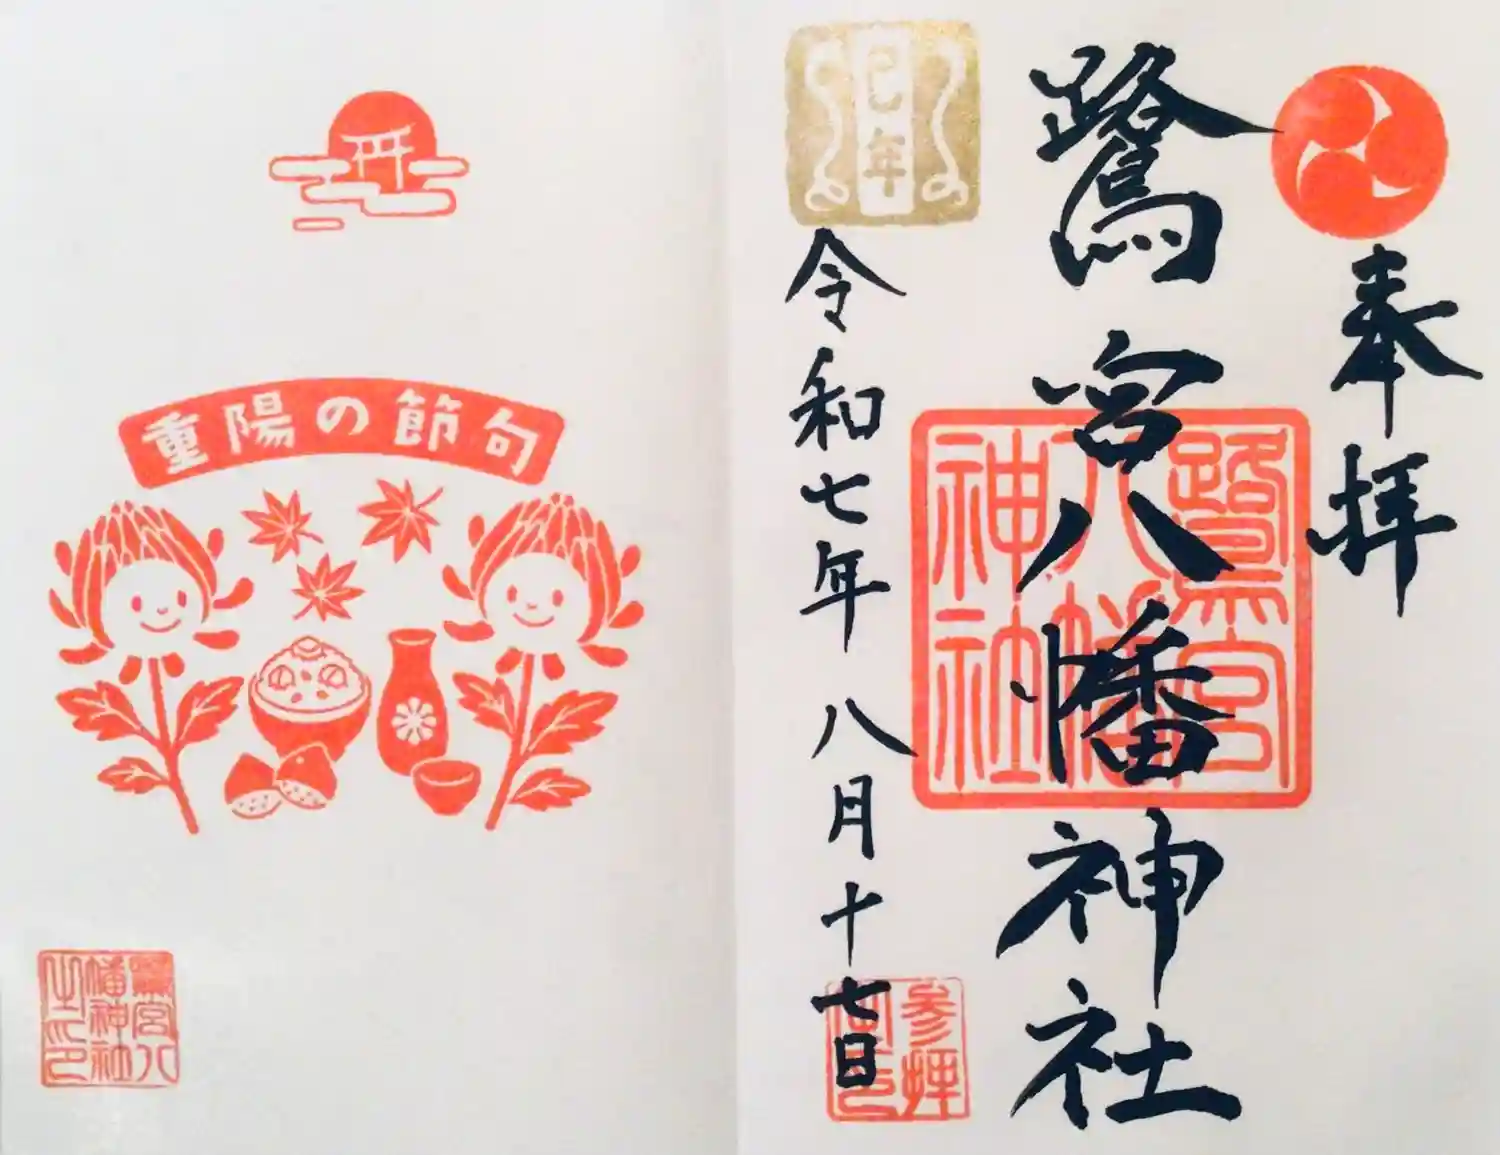 奉拝
鷺宮八幡神社
鷺宮
八幡
神社
巳年
令和七年 八月十七日
参拝
重陽の節句
鷺宮八
幡神社
之印